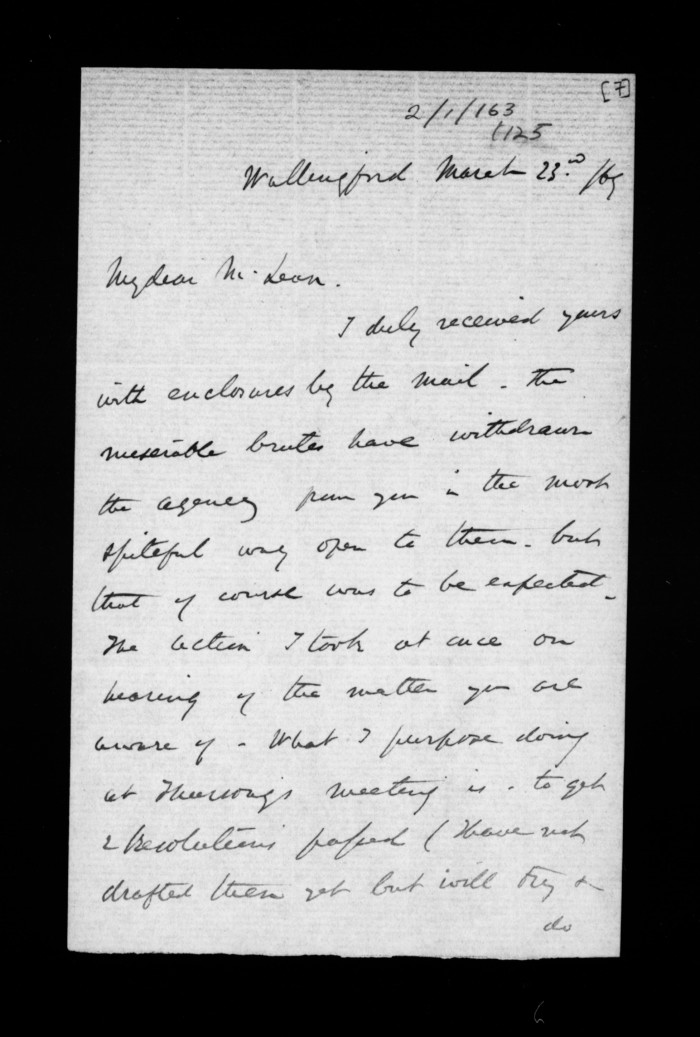 [7]
2/1/163
1125
Wallingford March 23.rd /69
My dear McLean.
I duly received yours
with enclosures by the mail - the
miserable brutes have withdrawn
the agency from you in the most
spiteful way open to them - but
that of course was to be expected -
The action I took at once on
hearing of the matter you are
aware of - What I purpose doing
at Thursday's meeting is - to get
2 Resolutions passed (I have not
drafted them yet but will try &
do